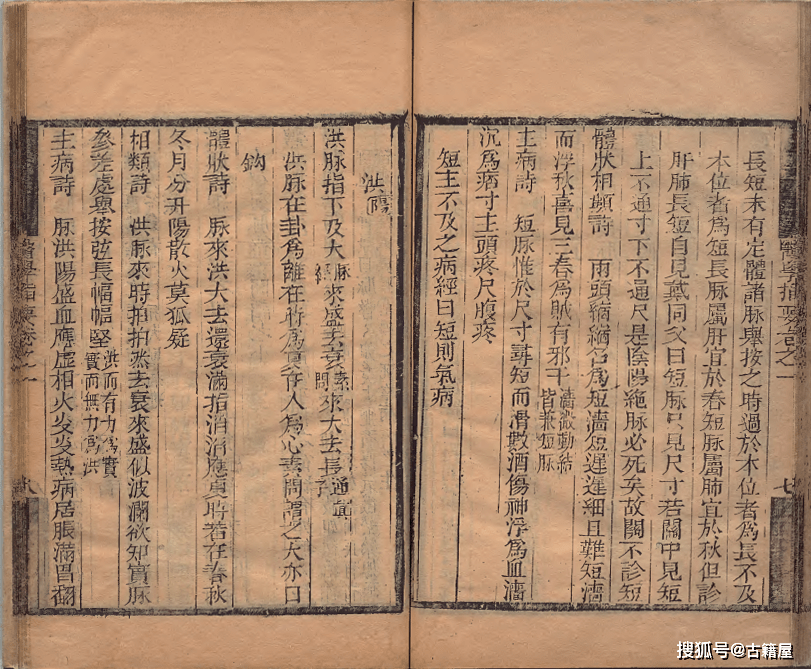 長短未有定體諸脉舉按之時過於本位者為長不及
本位者為短長脉屬肝宜於春短脉屬肺宜於秋但診
肝肺長短自見戴同父曰短脉只見尺寸若關中見短
上不通寸下不通尺是陰陽絶脉必死矣故關不診短
體狀相類詩 兩頭縮縮名為短濇短遲遲細且難短濇
而浮秋喜見三春為賊有邪干 濇微動結皆兼短脉
主病詩 短脉惟於尺寸尋短而滑數酒傷神浮為血濇
沉為痞寸主頭疼尺腹疼
短主不及之病經曰短則氣病
七
洪陽
洪脉指下及大脉經來盛去衰素問來大去長通眞子
洪脉在卦為離在時為夏在人為心素問謂之大亦曰
鈎
體狀詩 脉來洪大去還衰滿指滔滔應夏時若在春秋
冬月分升陽散火莫狐疑
相類詩 洪脉來時拍拍然去衰來盛似波瀾欲知實脉
參差處舉按弦長幅幅堅 洪而有力為實實而無力為洪
主病詩 脉洪陽盛血應虛相火炎炎熱病居脹滿胃翻
八
搜狐号@古籍屋